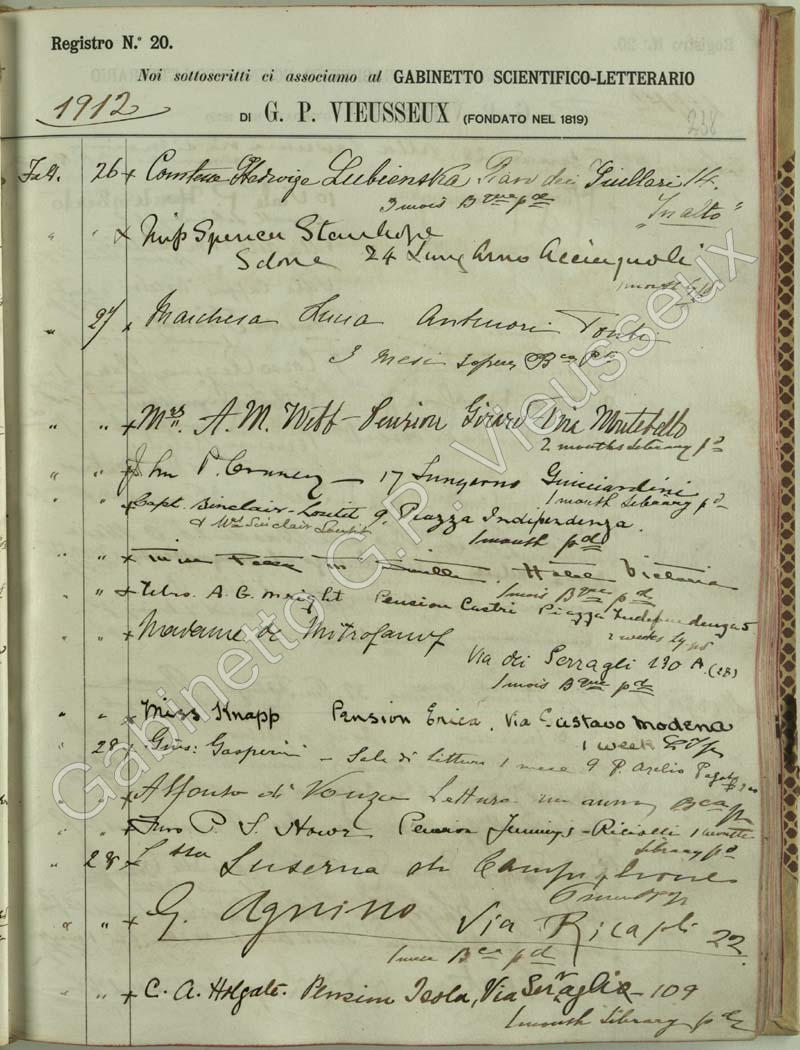 Registro N.° 20.
Noi sottoscritti ci associamo al GABINETTO SCIENTIFICO-LETTERARIO
1912
DI G. P. VIEUSSEUX (FONDATO NEL 1819)
238
26 Hedwige Lubienska dei Giullari 14.
3 mois Bque pd "In alto"
" " Miss Spencer Stanhope
24 Lung Arno Acciaiuoli
1 month
" 27 Marchesa Luisa Antinori
3 mesi Bca
" " Mrs. A. M. Webb - Pension Girard Via Montebello
2 months Library pd
" " John P. — 17 Lungarno Guicciardini
1 month Library pd
" " Capt. Sinclair-Loutit 9. Piazza Indipendenza.
& Mrs Sinclair Loutit
1 month pd
" " Hotel Victoria
1 mois Bque pd
" " A. G. Wright Pension Castri Piazza Indipendenza 5
2 weeks
" " Madame de Mitrofanoff
Via dei Serragli 130 A. (28)
1 mois Bque pd
" " Miss Knapp Pension Erica, Via Gustavo Modena
1 week
" 28 Gius: Gasperini - Sala di lettura 1 mese 9 P. Azelio
" " Alfonso di lettura un anno Bca
" " P. S. Howe Pension Jennings-Riccioli 1 month
Library pd
" 28 Luserna di Campiglione
" " G. Agnino Via Ricasoli 22.
1 mese Bca pd
" " C. A. Holgate. Pension Isola, Via Serraglio - 109
1 month Library pd
Gabinetto G.P. Vieusseux